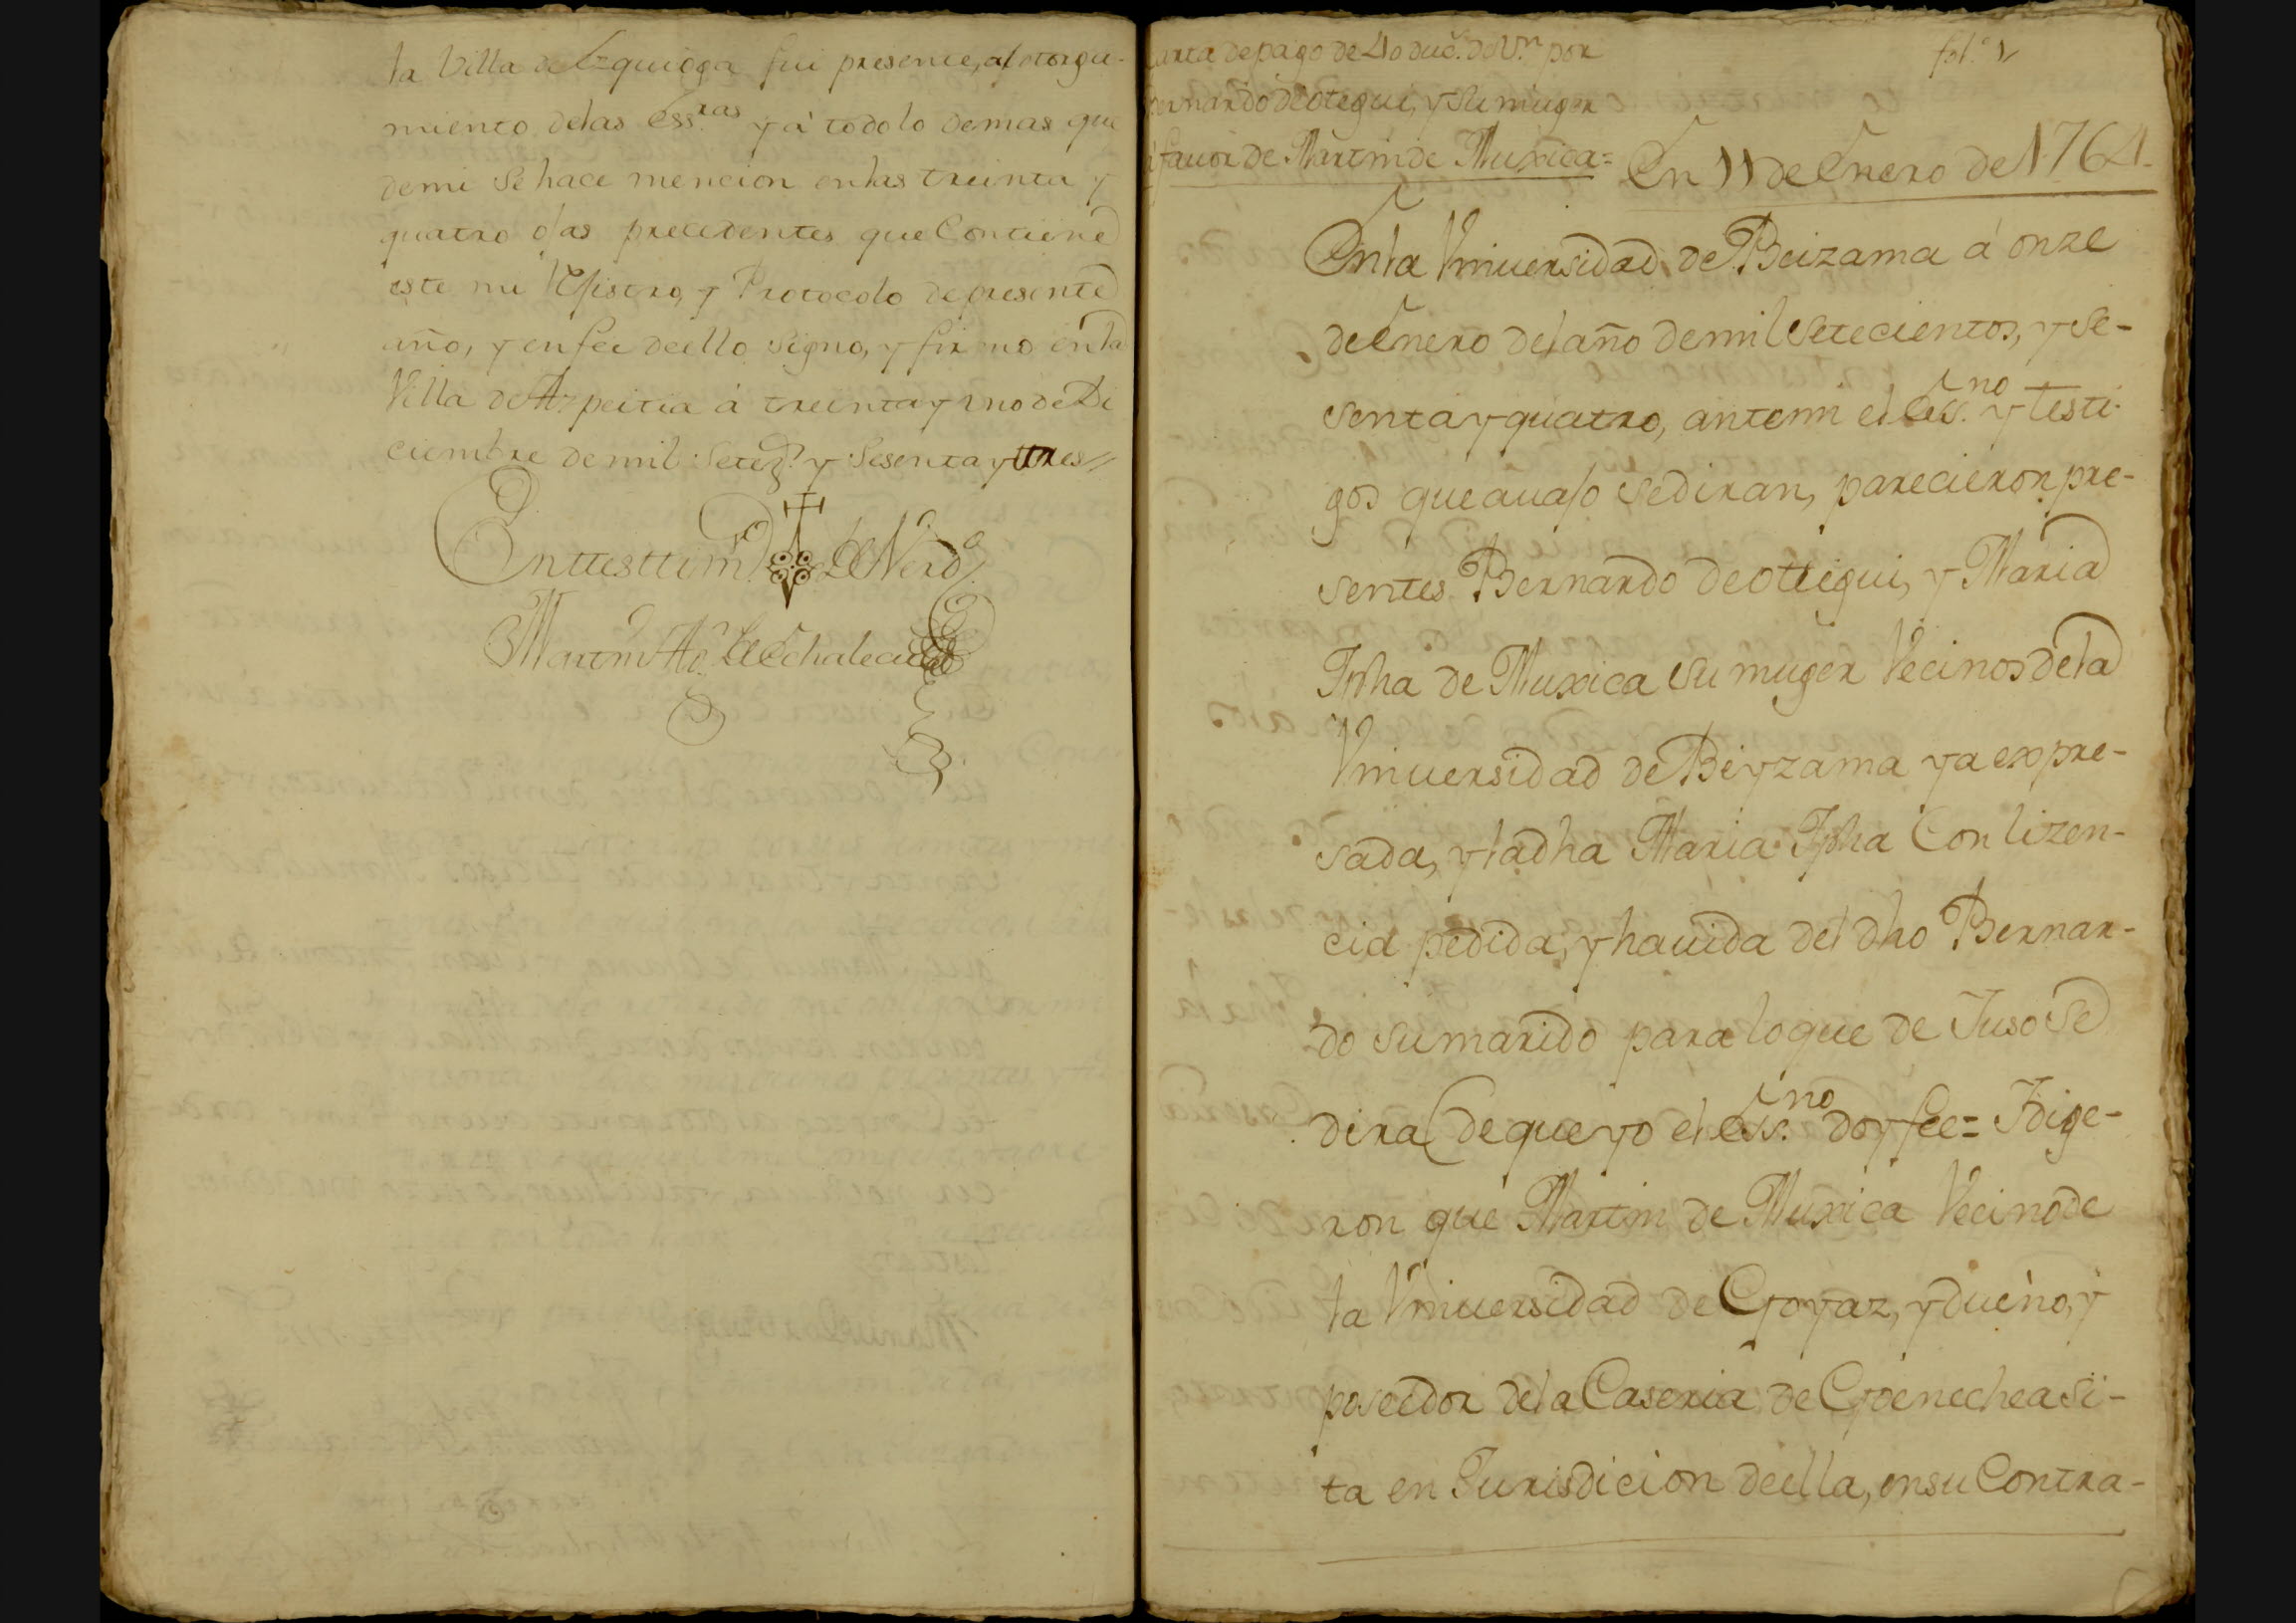 la Villa de Ezquioga fui presente, al otorga-
miento delas Ess.ras y a todo lo demas que
demi se hace mencion en las treinta y
quatro ojas precedentes que Contiene
este mi Rexistro, y Protocolo de presente
año, y en fee de ello signo, y firmo en la
Villa de Azpeitia á treinta y uno de Di
ciembre de mil setez.s y sesenta y tres //
En testtim.o de Verd.
Martin Ao. de Echalecu
Carta de pago de 40 duc.s de V.n por
Bernardo de otegui, y su muger
á fauor de Martin de Muxica =
fol.o 1
En 11 de Enero de 1764.
En la Vniuersidad de Beizama á onze
de Enero del año de mil setecientos, y se-
senta y quatro, ante mi el Ess.no y testi-
gos que auajo se diran, parecieron pre-
sentes Bernardo de oteigui, y Maria
Jpha de Muxica su muger Vecinos de la
Vniuersidad de Beyzama ya expre-
sada, y la dha Maria Jpha Con lizen-
cia pedida, y hauida del dho Bernar-
do su marido para lo que de Iuso se
dira (de que yo el Ess.no doy fee = I dige-
ron que Martin de Muxica Vecino de
la Vniuersidad de Goyaz, y dueño, y
poseedor de la Caseria de Goenechea si-
ta en Jurisdicion de ella, en su Contra-